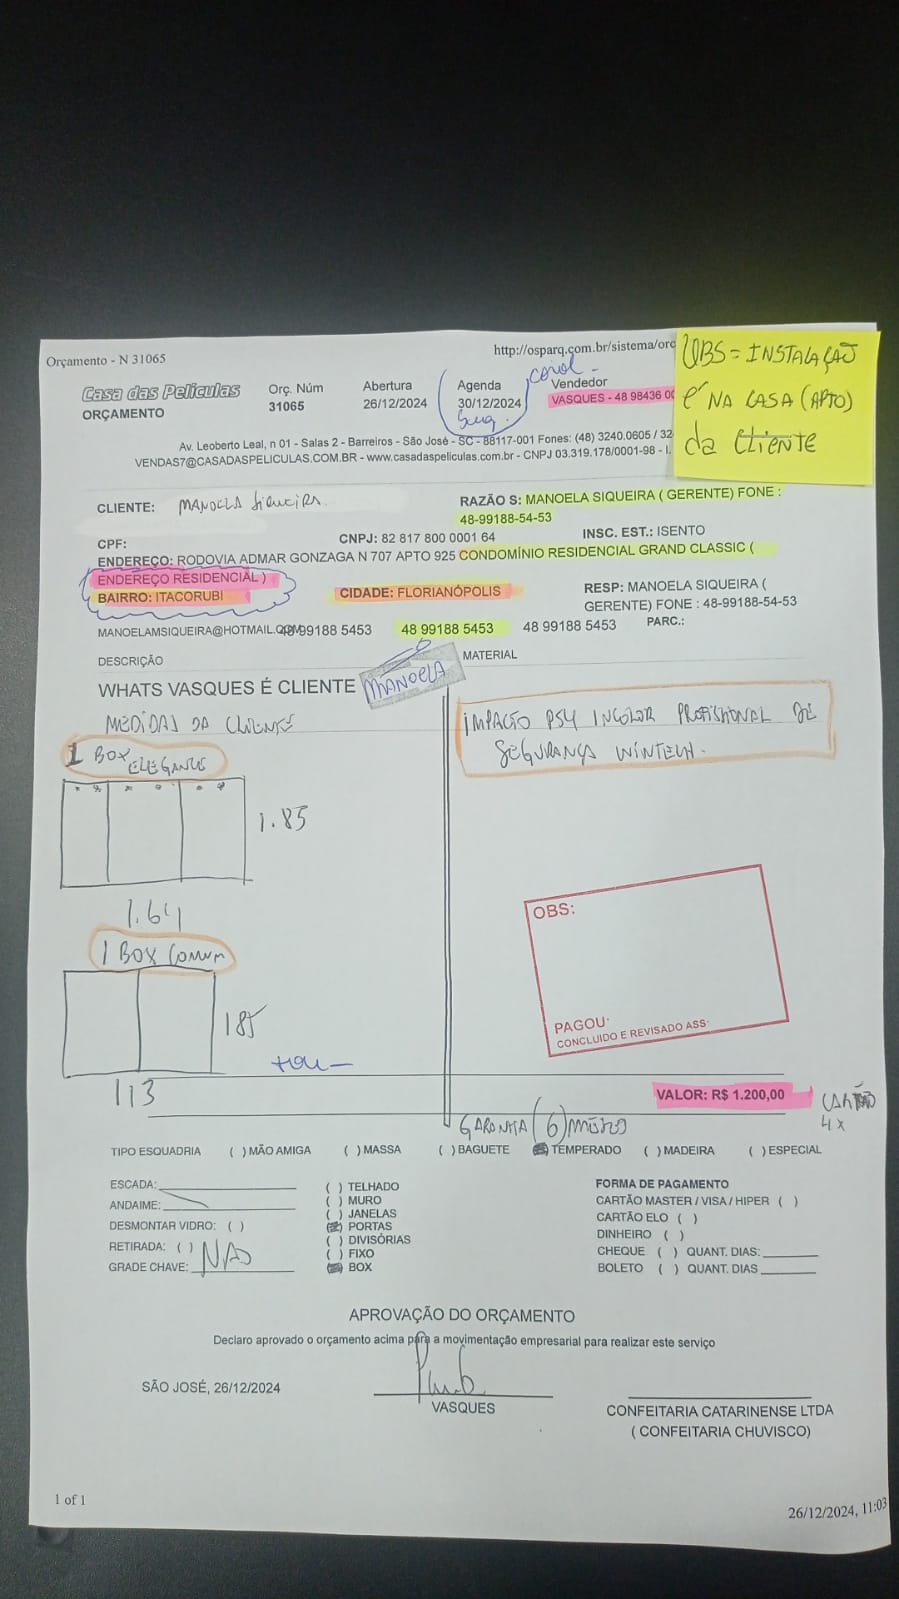 Orçamento - N 31065
http://osparq.com.br/sistema/orc
Casa das Películas
ORÇAMENTO
Orç. Núm
31065
Abertura
26/12/2024
Agenda
30/12/2024
Seg.
Vendedor
VASQUES - 48 98436 00
OBS = INSTALAÇÃO
É NA CASA (APTO)
da CLIENTE
Av. Leoberto Leal, n 01 - Salas 2 - Barreiros - São José - SC - 88117-001 Fones: (48) 3240.0605 / 32
VENDAS7@CASADASPELICULAS.COM.BR - www.casadaspeliculas.com.br - CNPJ 03.319.178/0001-98 - I.
CLIENTE: MANOELA SIQUEIRA
RAZÃO S: MANOELA SIQUEIRA ( GERENTE) FONE :
48-99188-54-53
CPF:
CNPJ: 82 817 800 0001 64
INSC. EST.: ISENTO
ENDEREÇO: RODOVIA ADMAR GONZAGA N 707 APTO 925 CONDOMÍNIO RESIDENCIAL GRAND CLASSIC (
ENDEREÇO RESIDENCIAL )
BAIRRO: ITACORUBI
CIDADE: FLORIANÓPOLIS
RESP: MANOELA SIQUEIRA (
GERENTE) FONE : 48-99188-54-53
MANOELAMSIQUEIRA@HOTMAIL.COM 48 99188 5453 48 99188 5453 48 99188 5453 PARC.:
DESCRIÇÃO
MATERIAL
WHATS VASQUES É CLIENTE MANOELA
MEDIDAS DA CLIENTE
1 BOX ELEGANCE
1.85
1.64
1 BOX COMUM
185
113
IMPACTO PS4 INCOLOR PROFISSIONAL DE
SEGURANÇA WINTECH.
OBS:
PAGOU:
CONCLUIDO E REVISADO ASS:
VALOR: R$ 1.200,00
CARTÃO
4x
GARANTIA (6) MESES
TIPO ESQUADRIA ( ) MÃO AMIGA ( ) MASSA ( ) BAGUETE ( ) TEMPERADO ( ) MADEIRA ( ) ESPECIAL
ESCADA:
ANDAIME:
DESMONTAR VIDRO: ( )
RETIRADA: ( ) NÃO
GRADE CHAVE:
( ) TELHADO
( ) MURO
( ) JANELAS
( ) PORTAS
( ) DIVISÓRIAS
( ) FIXO
( ) BOX
FORMA DE PAGAMENTO
CARTÃO MASTER / VISA / HIPER ( )
CARTÃO ELO ( )
DINHEIRO ( )
CHEQUE ( ) QUANT. DIAS:
BOLETO ( ) QUANT. DIAS
APROVAÇÃO DO ORÇAMENTO
Declaro aprovado o orçamento acima para a movimentação empresarial para realizar este serviço
SÃO JOSÉ, 26/12/2024
VASQUES
CONFEITARIA CATARINENSE LTDA
( CONFEITARIA CHUVISCO)
1 of 1
26/12/2024, 11:03